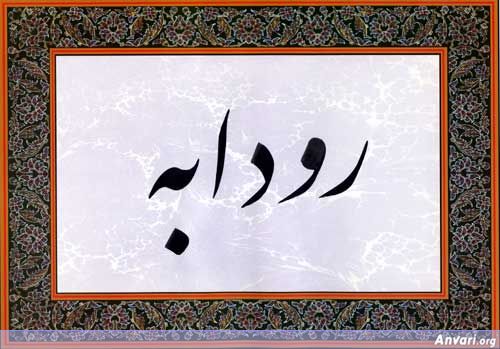 رودابه
Anvari.org